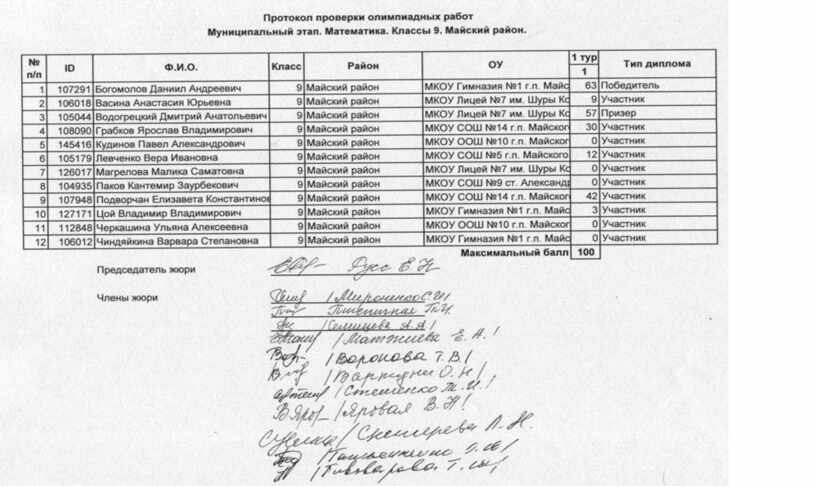 Протокол проверки олимпиадных работ
Муниципальный этап. Математика. Классы 9. Майский район.
№ п/п ID Ф.И.О. Класс Район ОУ 1 тур Тип диплома
1
1 107291 Богомолов Даниил Андреевич 9 Майский район МКОУ Гимназия №1 г.п. Майс 63 Победитель
2 106018 Васина Анастасия Юрьевна 9 Майский район МКОУ Лицей №7 им. Шуры Ко 9 Участник
3 105044 Водогрецкий Дмитрий Анатольевич 9 Майский район МКОУ Лицей №7 им. Шуры Ко 57 Призер
4 108090 Грабков Ярослав Владимирович 9 Майский район МКОУ СОШ №14 г.п. Майског 30 Участник
5 145416 Кудинов Павел Александрович 9 Майский район МКОУ ООШ №10 г.п. Майског 0 Участник
6 105179 Левченко Вера Ивановна 9 Майский район МКОУ СОШ №5 г.п. Майского 12 Участник
7 126017 Магрелова Малика Саматовна 9 Майский район МКОУ Лицей №7 им. Шуры Ко 0 Участник
8 104935 Паков Кантемир Заурбекович 9 Майский район МКОУ СОШ №9 ст. Александр 0 Участник
9 107948 Подворчан Елизавета Константинов 9 Майский район МКОУ СОШ №14 г.п. Майског 42 Участник
10 127171 Цой Владимир Владимирович 9 Майский район МКОУ Гимназия №1 г.п. Майс 3 Участник
11 112848 Черкашина Ульяна Алексеевна 9 Майский район МКОУ ООШ №10 г.п. Майског 0 Участник
12 106012 Чиндяйкина Варвара Степановна 9 Майский район МКОУ Гимназия №1 г.п. Майс 0 Участник
Максимальный балл 100
Председатель жюри Гусс Е.Н
Члены жюри /Мироненко С.И/
Пшеничная
/Семищева А.А/
Е.А./
/Воронова Т.В/
О.Н/
/Стешенко
/Яровая В.Н/
Л.Н.
/Пивоварова Т.